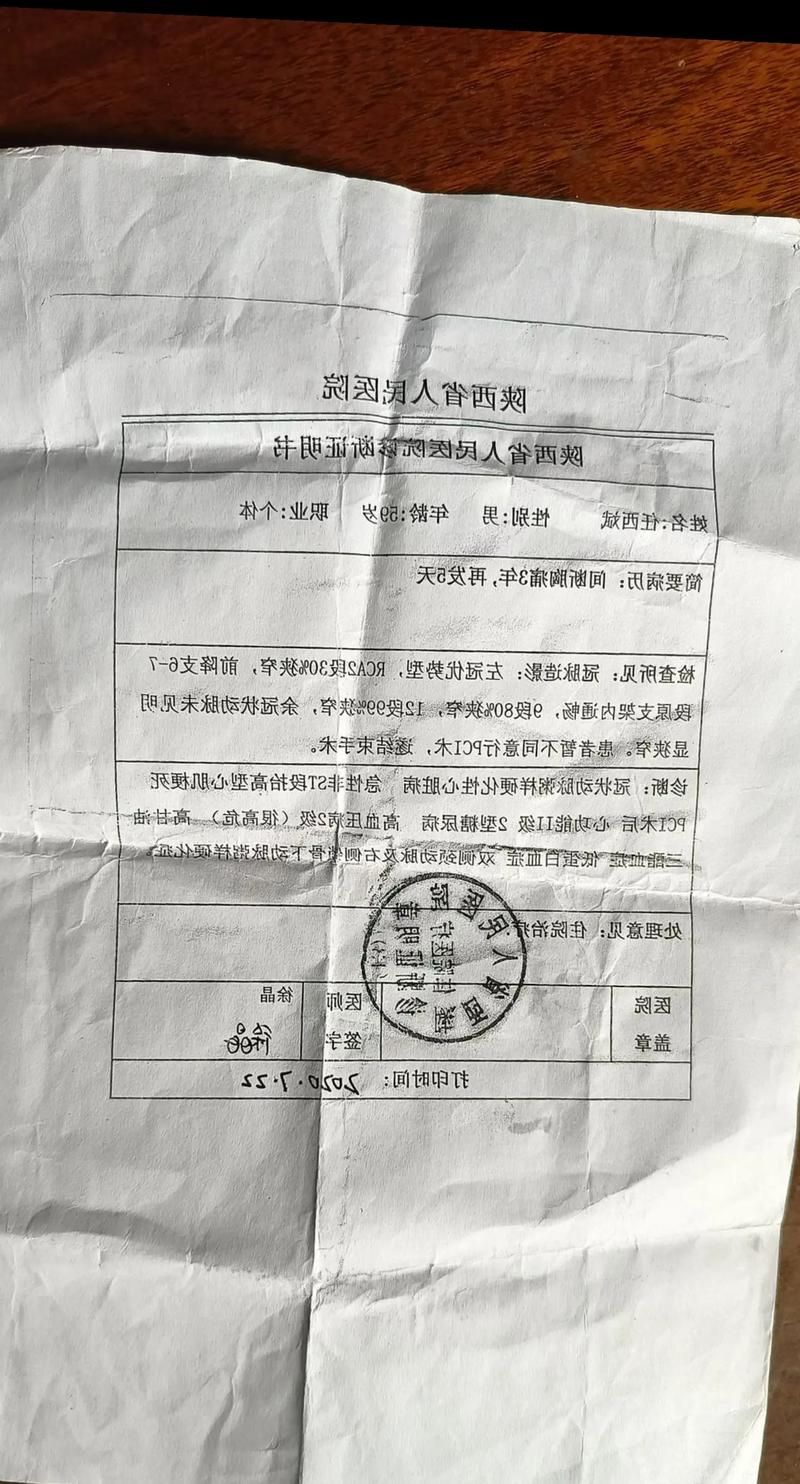 陕西省人民医院
陕西省人民医院诊断证明书
姓名:任西斌 性别:男 年龄:59岁 职业:个体
简要病历: 间断胸痛3年,再发5天
检查所见: 冠脉造影: 左冠优势型, RCA2段30%狭窄, 前降支6-7
段原支架内通畅, 9段80%狭窄, 12段99%狭窄, 余冠状动脉未见明
显狭窄。患者暂不同意行PCI术, 遂结束手术。
诊断: 冠状动脉粥样硬化性心脏病 急性非ST段抬高型心肌梗死
PCI术后 心功能II级 2型糖尿病 高血压病2级(很高危) 高甘油
三酯血症 低蛋白血症 双侧颈动脉及右侧锁骨下动脉粥样硬化症。
处理意见: 住院治疗
医院
盖章
医师
签字
徐晶
陕西省人民医院
诊断证明章
打印时间: 2020.7.22